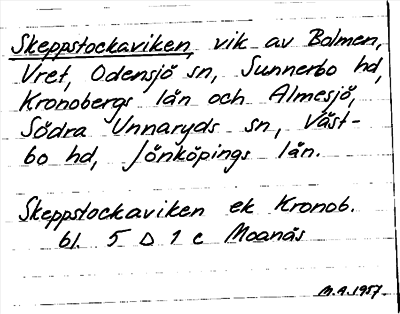 Skeppstockaviken, vik av Bolmen,
Vret, Odensjö sn, Sunnerbo hd,
Kronobergs län och Almesjö,
Södra Unnaryds sn, Väst-
bo hd, Jönköpings län.
Skeppstockaviken ek Kronob.
bl. 5 D 1 c Moanäs
M.A. 1957.